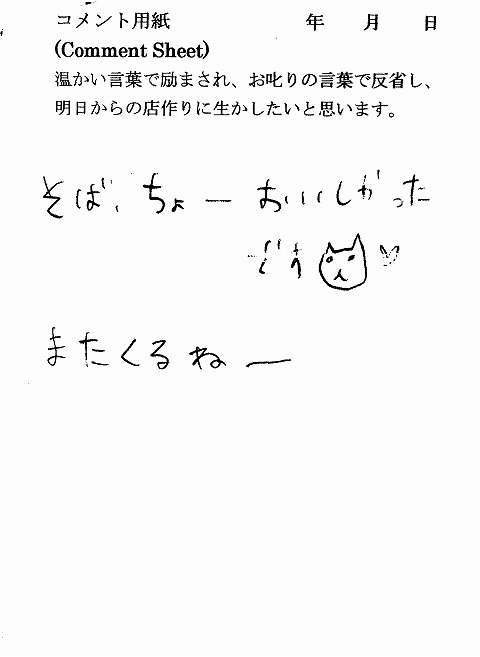 コメント用紙 年 月 日
(Comment Sheet)
温かい言葉で励まされ、お叱りの言葉で反省し、
明日からの店作りに生かしたいと思います。
そば、ちょーおいしかった
またくるねー